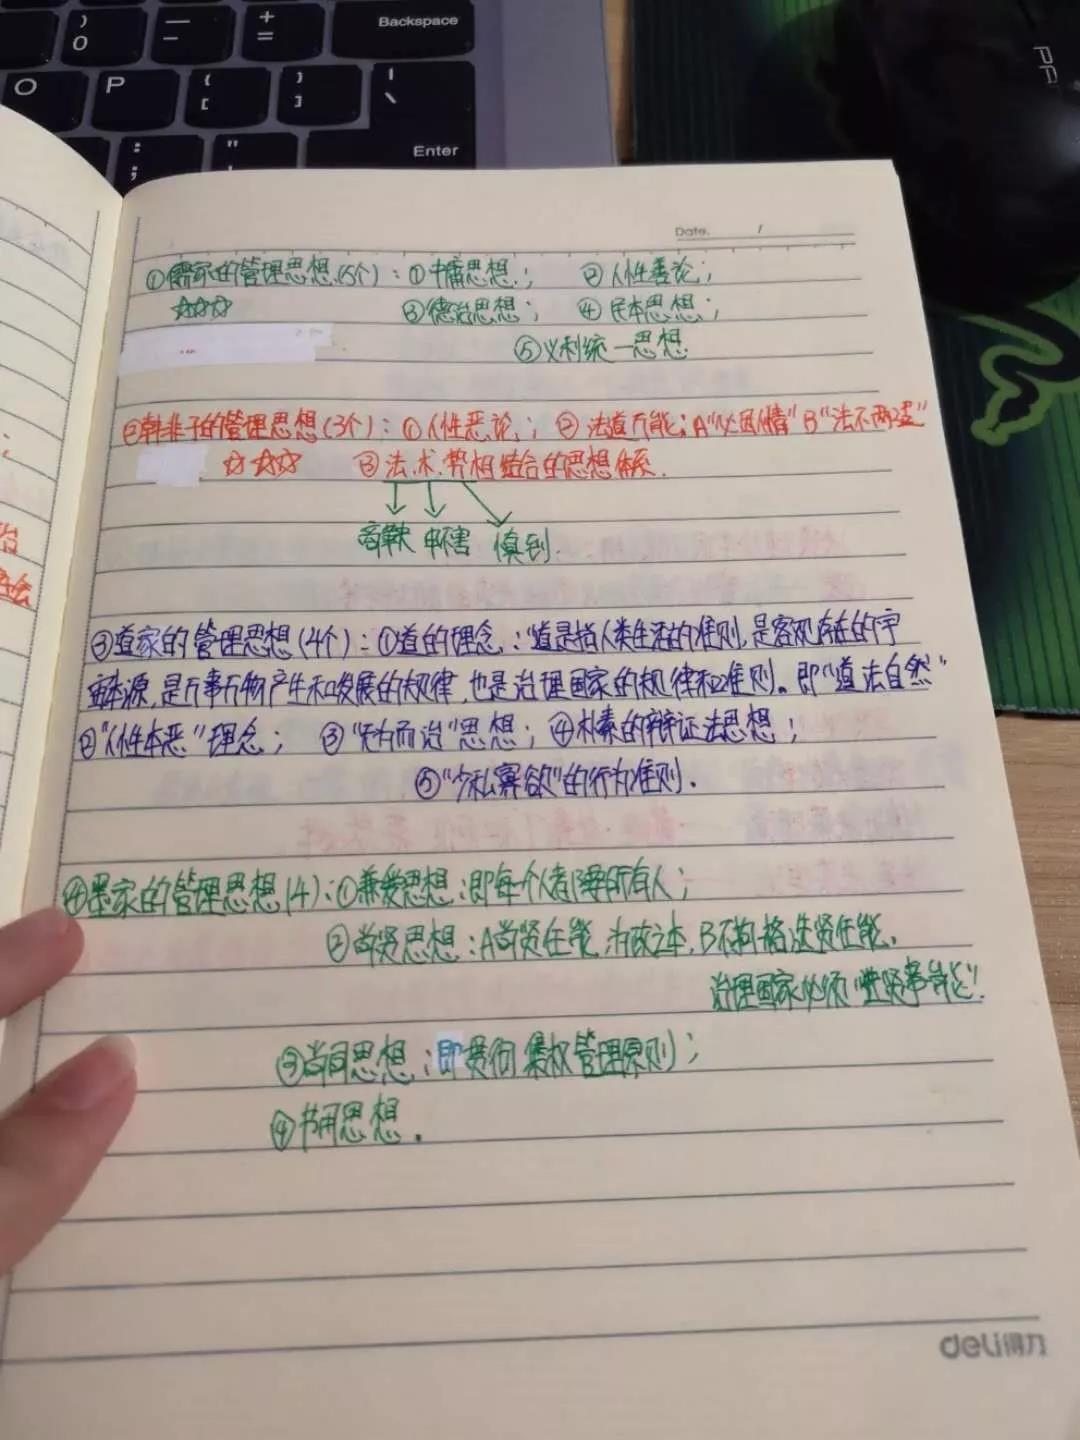 )
0
—
–
+
=
Backspace
O
P
{
[
}
]
|
\
:
;
"
Enter
Date. /
①儒家的管理思想(5个):①中庸思想; ②人性善论;
☆☆☆ ③德治思想; ④民本思想;
⑤义利统一思想
②韩非子的管理思想(3个):①人性恶论; ②法道万能;A"必因人情"B"法不两适"
☆☆☆ ③法.术.势相结合的思想体系.
商鞅 申不害 慎到.
③道家的管理思想(4个):①道的理念:道是指人类生活的准则,是客观存在的宇
宙本源,是万事万物产生和发展的规律,也是治理国家的规律和准则。即"道法自然"
②"人性本恶"理念; ③"无为而治"思想; ④朴素的辩证法思想;
⑤"少私寡欲"的行为准则.
④墨家的管理思想(4):①兼爱思想:即每个人都要所有人;
②尚贤思想:A尚贤任能,为政之本,B不拘一格选贤任能,
治理国家必须
③尚同思想:即贯彻集权管理原则);
④节用思想.
deli得力